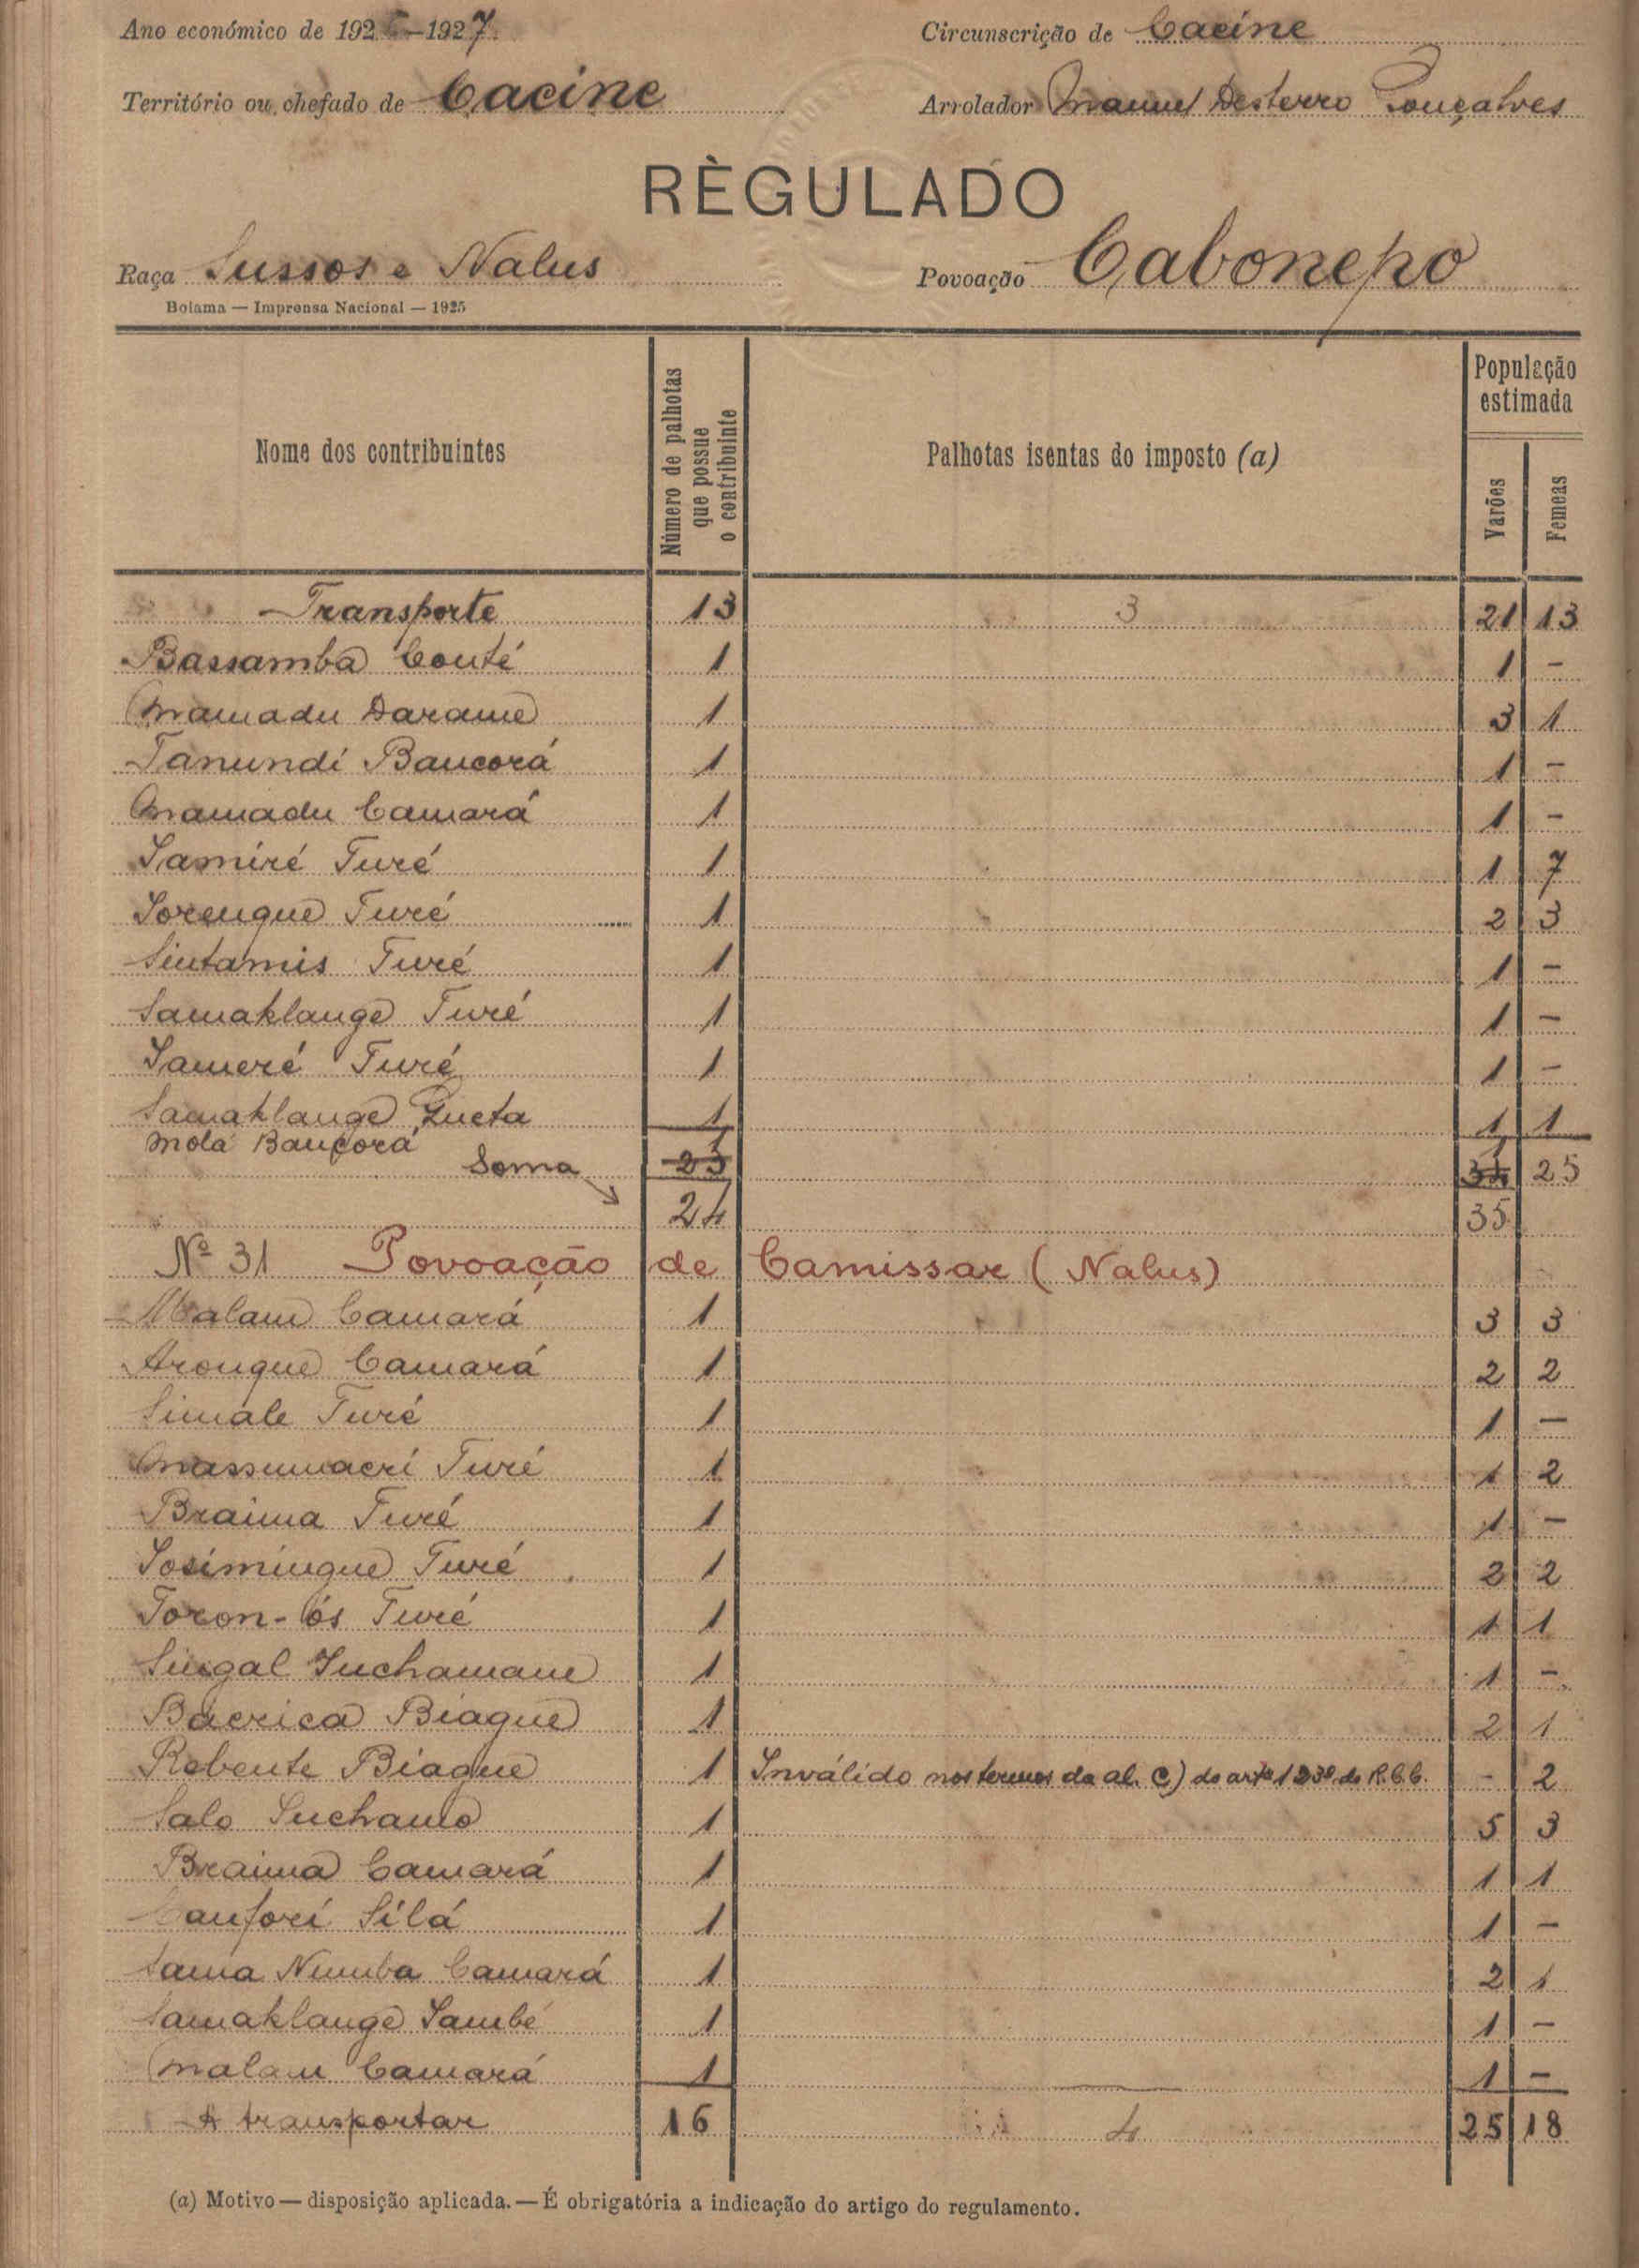 Ano económico de 192 -1927 Circunscrição de Cacine
Território ou chefado de Cacine Arrolador Manuel Desterro Gonçalves
RÈGULADO
Raça Sussos e Nalus Povoação Cabonepo
Bolama — Imprensa Nacional — 1925
Nome dos contribuintes Número de palhotas que possue o contribuinte Palhotas isentas do imposto (a) População estimada Varões Femeas
Transporte 13 3 21 13
Bassamba Conté 1 1 -
Mamadu Darame 1 3 1
Tanundi Baucorá 1 1 -
Mamadu Camará 1 1 -
Samiré Turé 1 1 7
Sorengue Turé 1 2 3
Sintamis Turé 1 1 -
Samaklange Turé 1 1 -
Sameré Turé 1 1 -
Samaklange Queta 1 1 1
Mola Baucorá 1 1
Soma 23 34 25
24 35
Nº 31 Povoação de Camissar (Nalus)
Malam Camará 1 3 3
Arougue Camará 1 2 2
Simale Turé 1 1 -
Massumacri Turé 1 1 2
Braima Turé 1 1 -
Sosimingue Turé 1 2 2
Toron-bós Turé 1 1 1
Singal Suchamane 1 1 -
Bacrica Biague 1 2 1
Rebente Biague 1 Inválido nos termos da al. c) do artº 123º do R.C.C. - 2
Salo Suchamo 1 5 3
Braima Camará 1 1 1
Canfori Silá 1 1 -
Sama Numba Camará 1 2 1
Samaklange Sambé 1 1 -
Malam Camará 1 1 -
A transportar 16 4 25 18
(a) Motivo — disposição aplicada. — É obrigatória a indicação do artigo do regulamento.